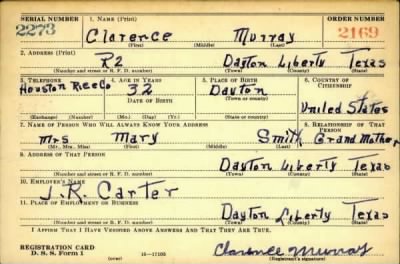 SERIAL NUMBER 1. NAME (Print) ORDER NUMBER
2273 Clarence Murray 2169
(First) (Middle) (Last)
2. ADDRESS (Print)
R2 Dayton Liberty Texas
(Number and street or R. F. D. number) (Town) (County) (State)
3. TELEPHONE 4. AGE IN YEARS 5. PLACE OF BIRTH 6. COUNTRY OF CITIZENSHIP
Houston Rice Co 32 Dayton
DATE OF BIRTH (Town or county)
United States
(Exchange) (Number) (Mo.) (Day) (Yr.) (State or country)
7. NAME OF PERSON WHO WILL ALWAYS KNOW YOUR ADDRESS 8. RELATIONSHIP OF THAT PERSON
Mrs Mary Smith Grand Mother
(Mr., Mrs., Miss) (First) (Middle) (Last)
9. ADDRESS OF THAT PERSON
Dayton Liberty Texas
(Number and street or R. F. D. number) (Town) (County) (State)
10. EMPLOYER'S NAME
J.R. Carter
11. PLACE OF EMPLOYMENT OR BUSINESS
Dayton Liberty Texas
(Number and street or R. F. D. number) (Town) (County) (State)
I AFFIRM THAT I HAVE VERIFIED ABOVE ANSWERS AND THAT THEY ARE TRUE.
REGISTRATION CARD
D. S. S. Form 1 (over) 16-17105 Clarence Murray
(Registrant's signature)